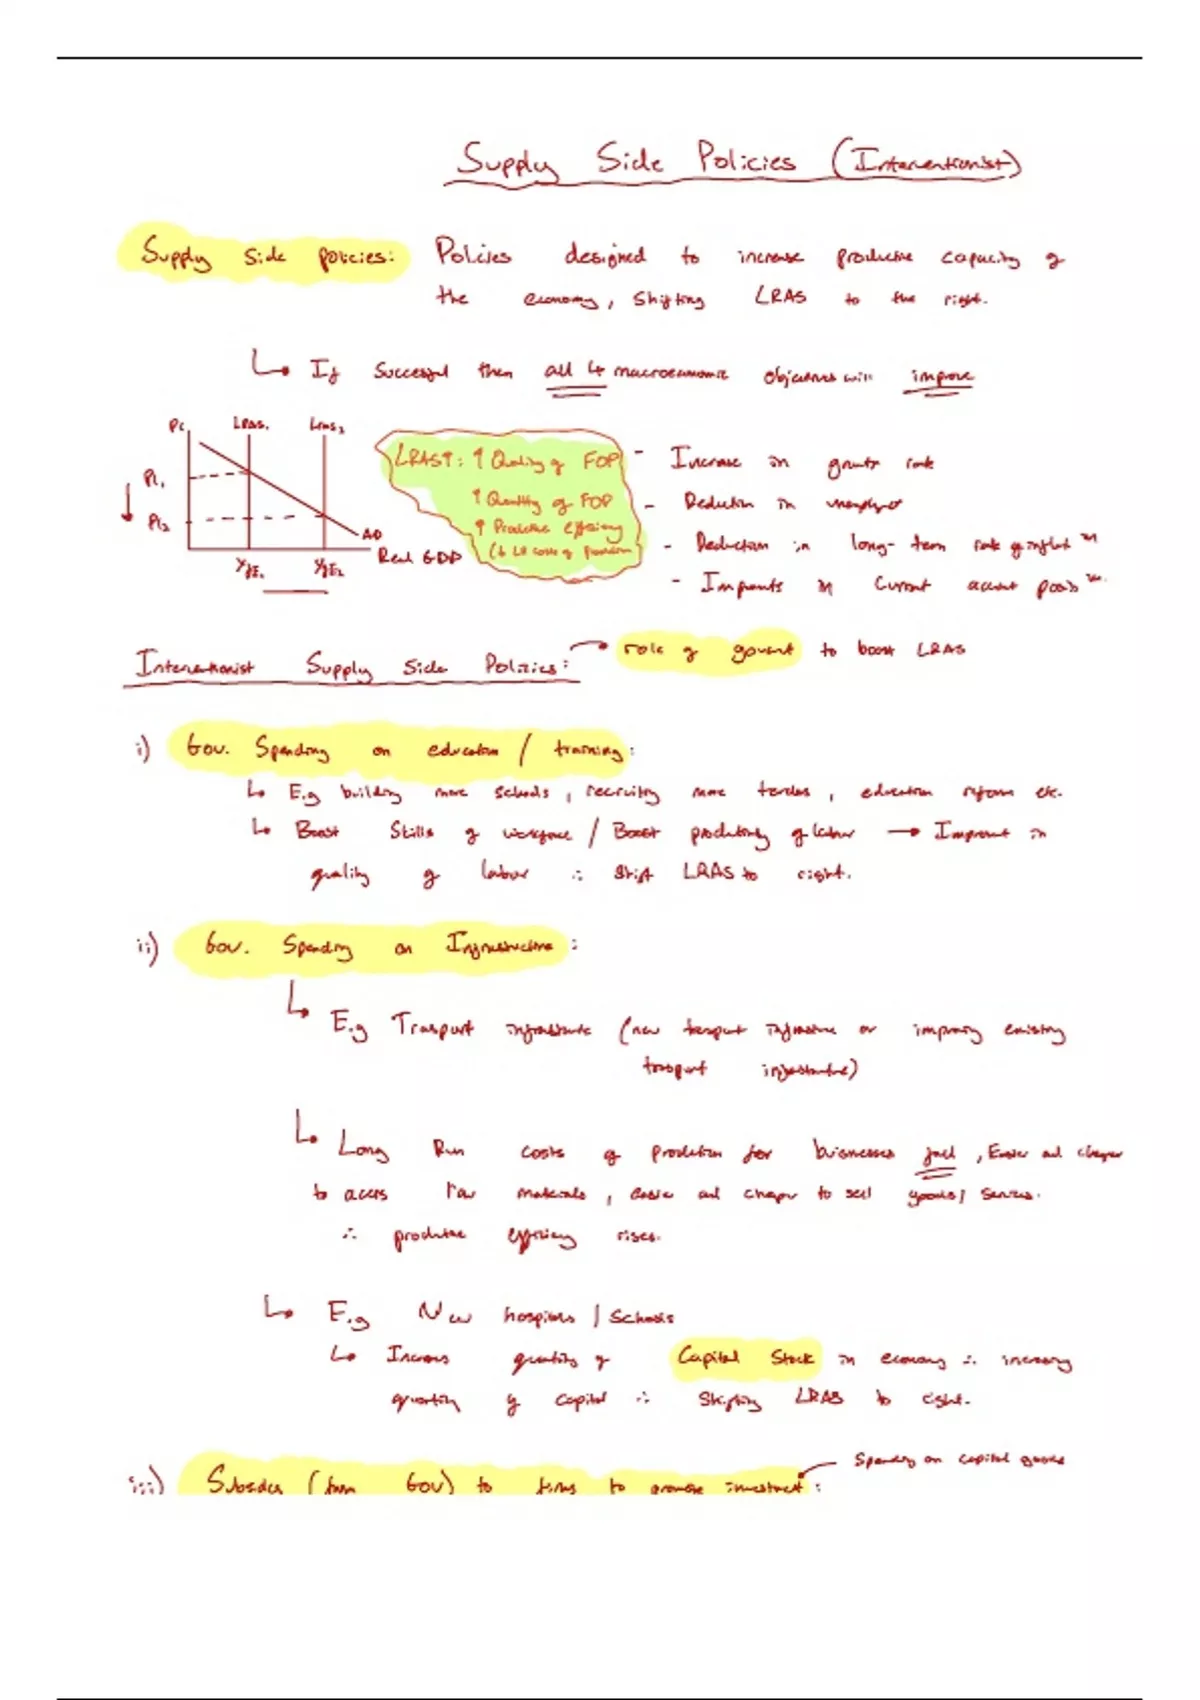 Supply Side Policies (Interventionist)
Supply side policies: Policies designed to increase productive capacity of
the economy, shifting LRAS to the right.
↳ If successful then all 4 macroeconomic objectives will improve
PL LRAS₁ LRAS₂
PL₁
PL₂
AD
Real GDP
YFE₁ YFE₂
LRAS↑: ↑ Quality of FOP
↑ Quantity of FOP
↑ Productive efficiency
(↓ LR costs of production
- Increase in growth rate
- Reduction in unemployment
- Reduction in long-term rate of inflation
- Improvements in current account position
Interventionist Supply Side Policies: → role of government to boost LRAS
i) Gov. Spending on education / training:
↳ E.g building more schools, recruiting more teachers, education reform etc.
↳ Boost skills of workforce / Boost productivity of labour → Improvement in
quality of labour ∴ shift LRAS to right.
ii) Gov. Spending on Infrastructure:
↳ E.g Transport infrastructure (new transport infrastructure or improving existing
transport infrastructure)
↳ Long Run costs of production for businesses fall, Easier and cheaper
to access raw materials, easier and cheaper to sell goods/services.
∴ productive efficiency rises.
↳ E.g New hospitals / Schools
↳ Increases quantity of Capital Stock in economy ∴ increasing
quantity of capital ∴ shifting LRAS to right.
iii) Subsidies (from Gov) to firms to promote investment:
Spending on capital goods